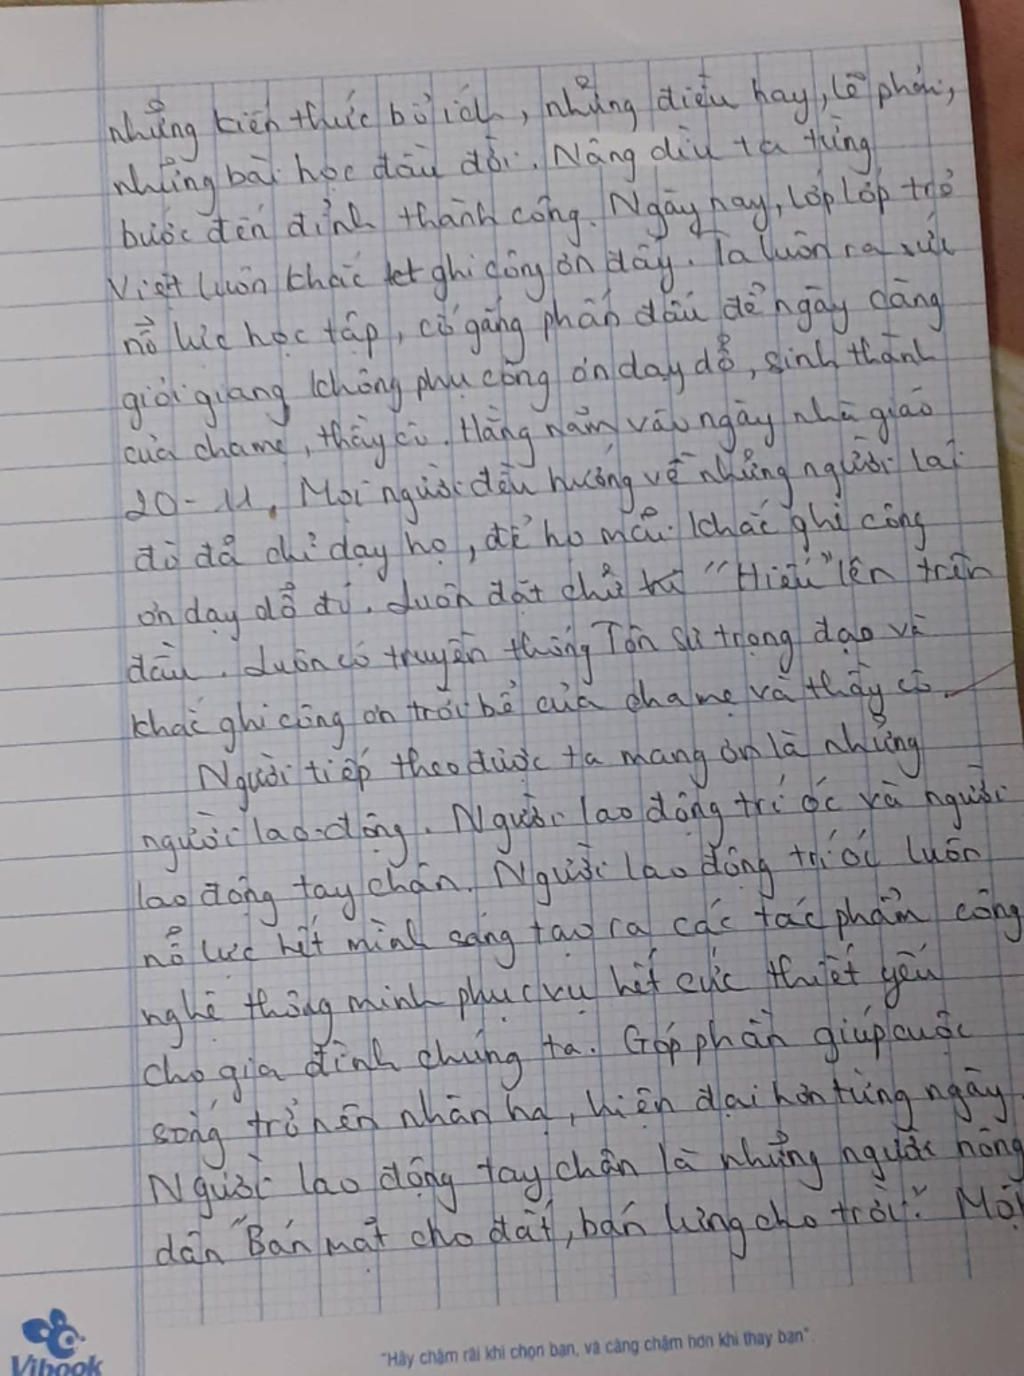 những kiến thức bổ ích, những điều hay, lẽ phải,
những bài học đầu đời. Nâng dìu ta từng
bước đến đỉnh thành công. Ngày nay, lớp lớp trẻ
Việt luôn khắc ghi công ơn đấy. Ta luôn ra sức
nỗ lực học tập, cố gắng phấn đấu để ngày càng
giỏi giang không phụ công ơn dạy dỗ, sinh thành
của cha mẹ, thầy cô. Hằng năm vào ngày nhà giáo
20-11. Mọi người đều hướng về những người lái
đò đã chỉ dạy họ, để họ mãi khắc ghi công
ơn dạy dỗ đó. Luôn đặt chữ "Hiếu" lên trên
đầu. Luôn có truyền thống Tôn Sư trọng đạo và
khắc ghi công ơn trời bể của cha mẹ và thầy cô.
Người tiếp theo được ta mang ơn là những
người lao động. Người lao động trí óc và người
lao động tay chân. Người lao động trí óc luôn
nỗ lực hết mình sáng tạo ra các tác phẩm công
nghệ thông minh phục vụ hết sức thiết yếu
cho gia đình chúng ta. Góp phần giúp cuộc
sống trở nên nhàn hạ, hiện đại hơn từng ngày.
Người lao động tay chân là những người nông
dân "Bán mặt cho đất, bán lưng cho trời". Mỗi
Vibook
"Hãy chậm rãi khi chọn bạn, và càng chậm hơn khi thay bạn".